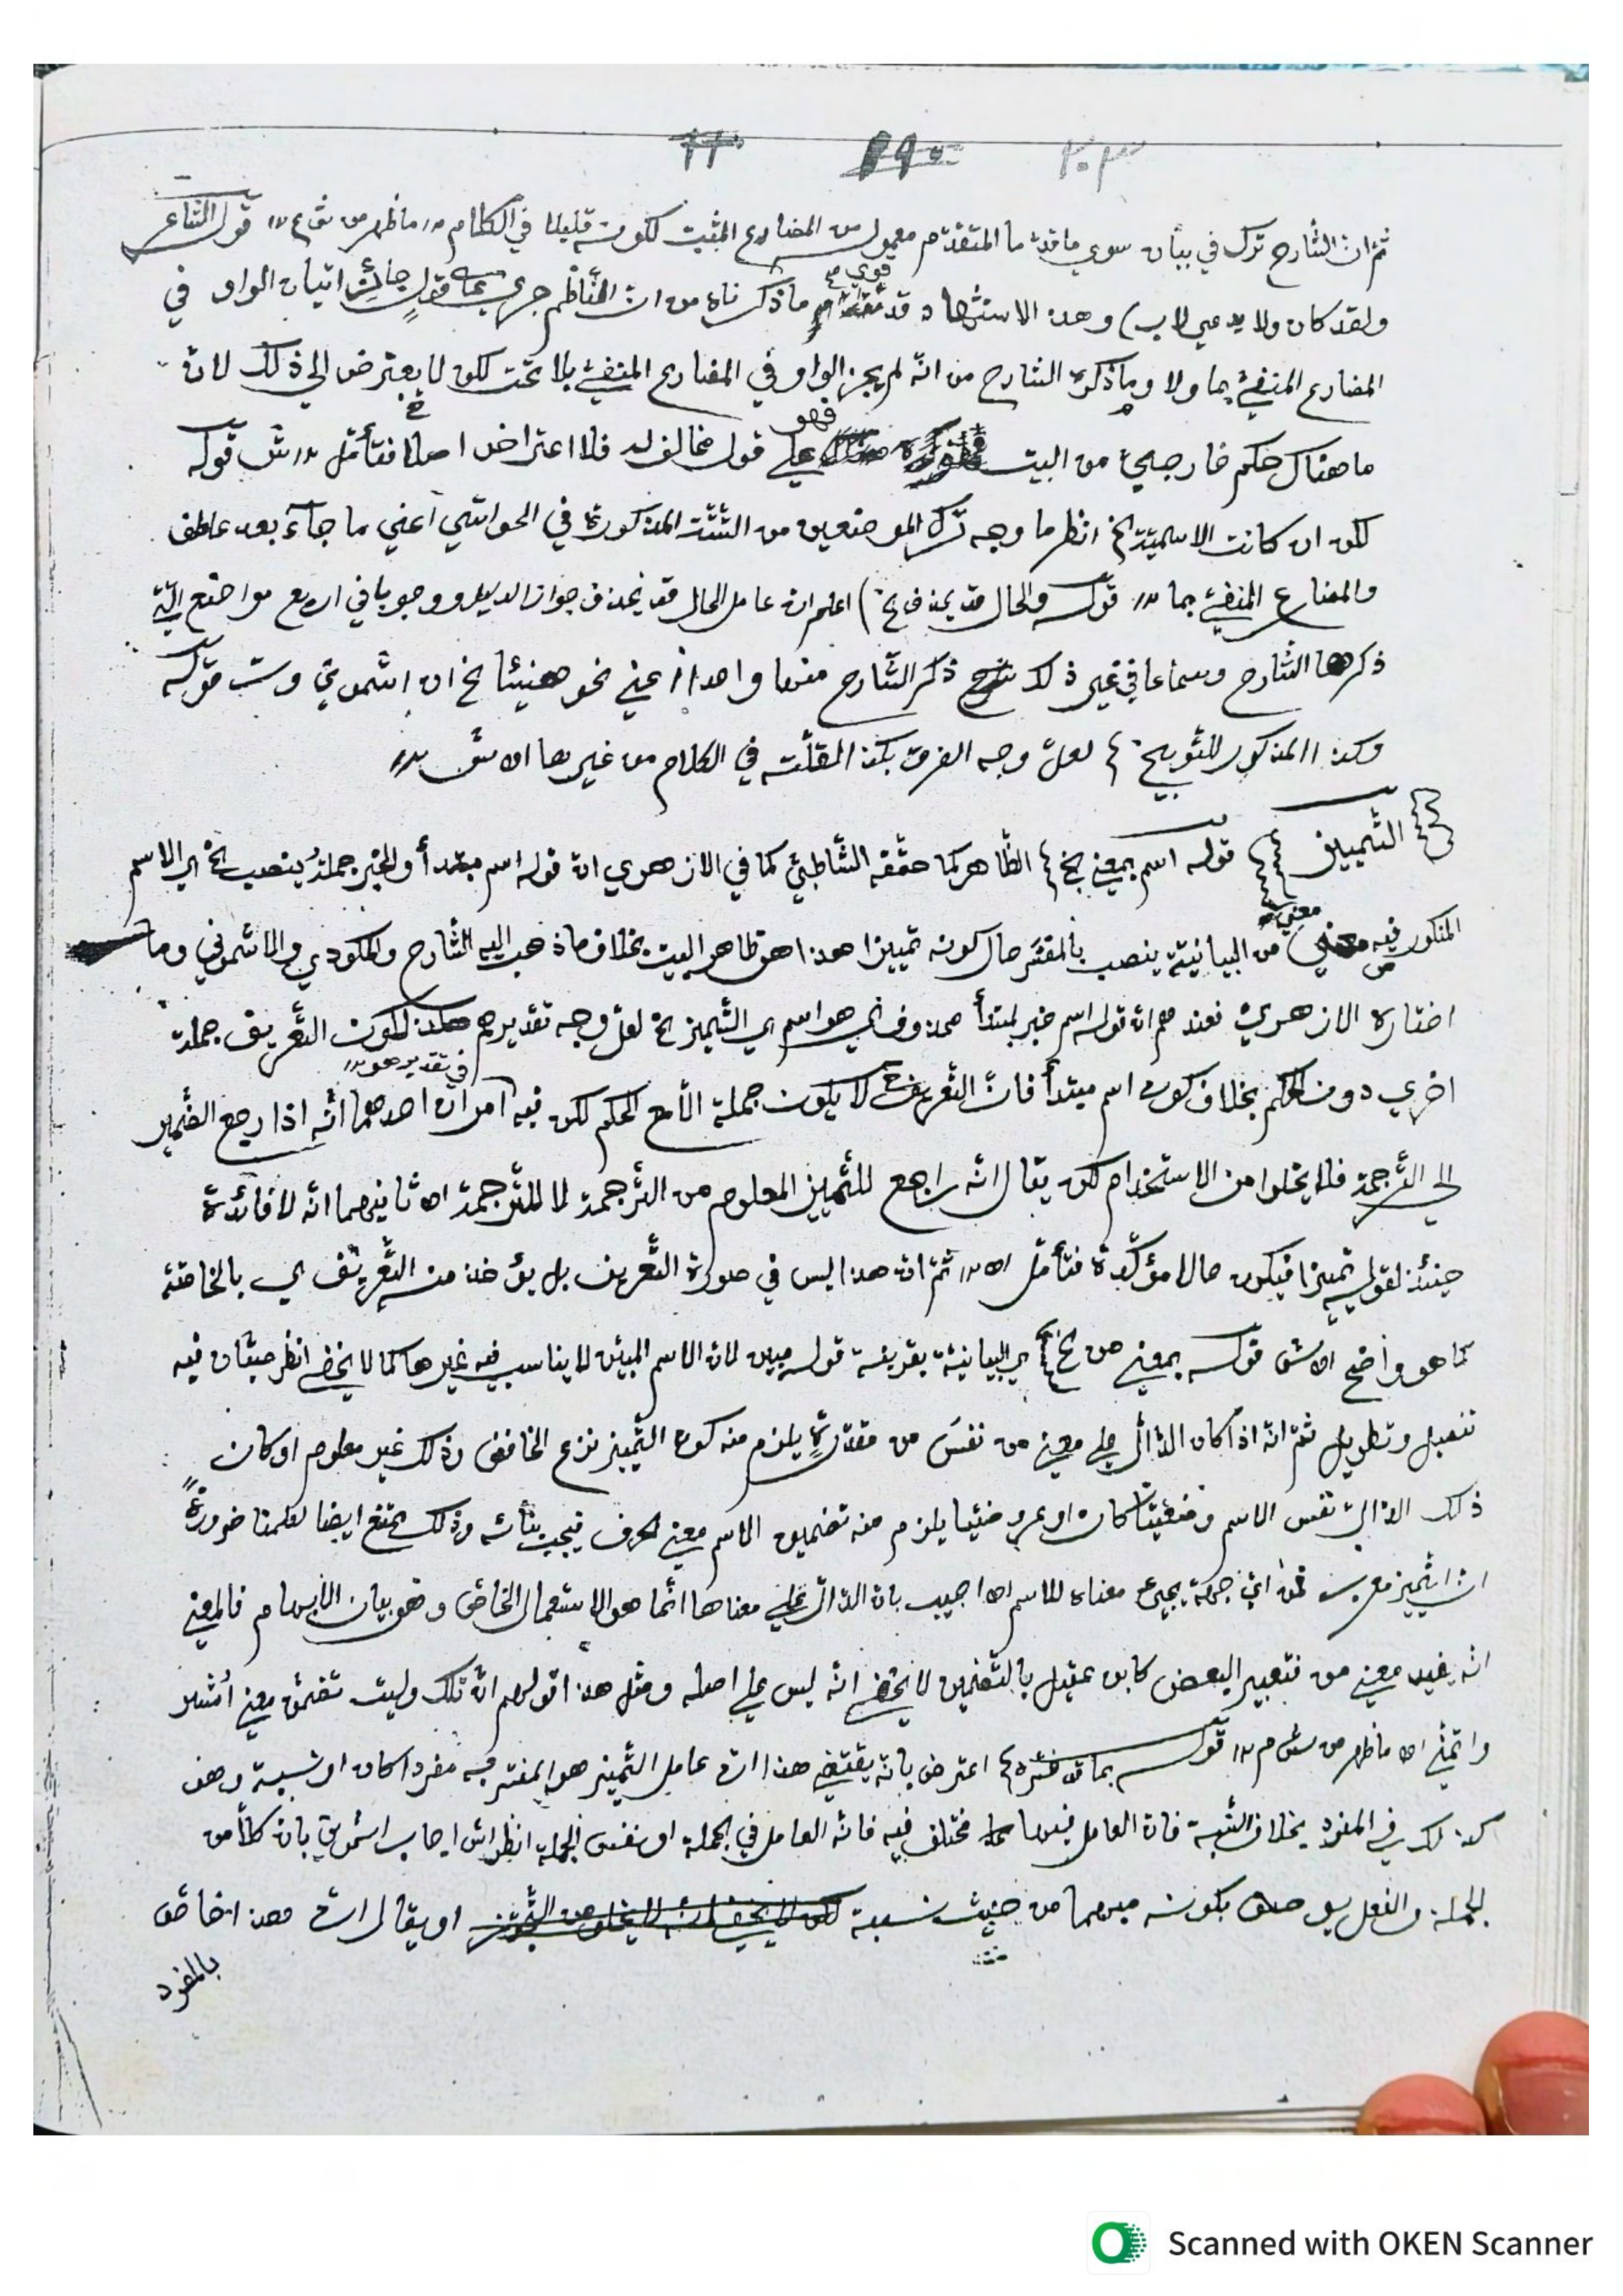 ٢٠٣
ثم ان الشارح ترك في بيان سوى ما قد ما المتقدم معمول من المضارع المثبت لكونه قليلا في الكلام ما ظهر من قول الشاعر
ولقد كان ولا يدعى لاب) وهذا الاستشهاد قد قوي ما ذكرناه من ان الناظم جرى على قول جائز اتيان الواو في
المضارع المنفي بما ولا وما ذكره الشارح من انه لم يجز الواو في المضارع المنفي بلا تحت لكن لا يعترض الى ذلك لان
ما هناك حكم خارجي من البيت فهو على قول مخالف له فلا اعتراض اصلا فتأمل ش قوله
لكن ان كانت الاسمية الخ انظر ما وجه ترك الموضعين من الستة المذكورة في الحواشي اعني ما جآء بعد عاطف
والمضارع المنفي بما قوله والحال قد يحذف الخ) اعلم ان عامل الحال قد يحذف جوازا لدليل ووجوبا في اربع مواضع التي
ذكرها الشارح وسماعا في غير ذلك ذكر الشارح منها واحدا اعني نحو هنيئا الخ اه اشموني وست قوله
وكذا المذكور للتوبيخ لعل وجه الفرق بكذا لقلته في الكلام من غيرها اه ش
التمييز قوله اسم بمعنى الخ الظاهر كما حققه الشاطبي كما في الازهري ان قوله اسم مبتدأ والخبر جملة ينصب الخ اي الاسم
المذكور فيه معنى من البيانية ينصب بالمفسر حال كونه تمييزا هذا هو ظاهر البيت بخلاف ما ذهب اليه الشارح والمكودي والاشموني وما
اختاره الازهري فعندهم ان قوله اسم خبر لمبتدأ محذوف اي هو اسم اي التمييز الخ لعل وجه تقديرهم لكون التعريف جملة
اخرى دون الحكم بخلاف كون اسم مبتدأ فان التعريف لا يكون جملة الا مع الحكم لكن فيه في تقدير هو امران احدهما انه اذا رجع الضمير
الى الترجمة فلا يخلوا من الاستخدام لكن يقال انه راجع للتمييز المعلوم من الترجمة لا للترجمة اه ثانيهما انه لا فائدة
حينئذ لقوله تمييزا فيكون حالا مؤكدة فتأمل اه ثم ان هذا ليس في صورة التعريف بل يؤخذ منه التعريف اي بالخاصة
كما هو واضح اه ش قوله بمعنى من الخ اي البيانية بقرينة قوله مبين لان الاسم المبين لا يناسب فيه غيرها كما لا يخفى انظر صبان فيه
تفصيل وتطويل ثم انه اذا كان الدال على معنى من نفس من مقدرة يلزم منه كون التمييز نزع الخافض وذلك غير معلوم او كان
ذلك الدال نفس الاسم وضعيا كان او عروضيا يلزم منه تضمين الاسم معنى الحرف فيجب بنائه وذلك ممتنع ايضا لعلمنا ضرورة
ان التمييز معرب فمن اي جهة يجيء معناه للاسم اه اجيب بان الدال على معناها انما هو الاستعمال الخاص وهو بيان الابهام فالمعنى
انه يفيد معنى من فتعبير البعض كابن عقيل بالتضمين لا يخفى انه ليس على اصله ومثل هذا قولهم ان تلك وليت تضمن معنى اشير
واتمنى اه ما ظهر من ش م قوله بما قد فسره اعترض بانه يقتضي هذا ان عامل التمييز هو المفسر فيه مفردا كان او نسبة وهو
كذلك في المفرد بخلاف النسبة فان العامل فيها مختلف فيه فانه العامل في الجملة او نفس الجملة انظر اش اجاب اشموني بان كلا من
الجملة والفعل يوصف بكونه مبهما من حيث نسبة او يقال ان هذا خاص
بالمفرد
Scanned with OKEN Scanner